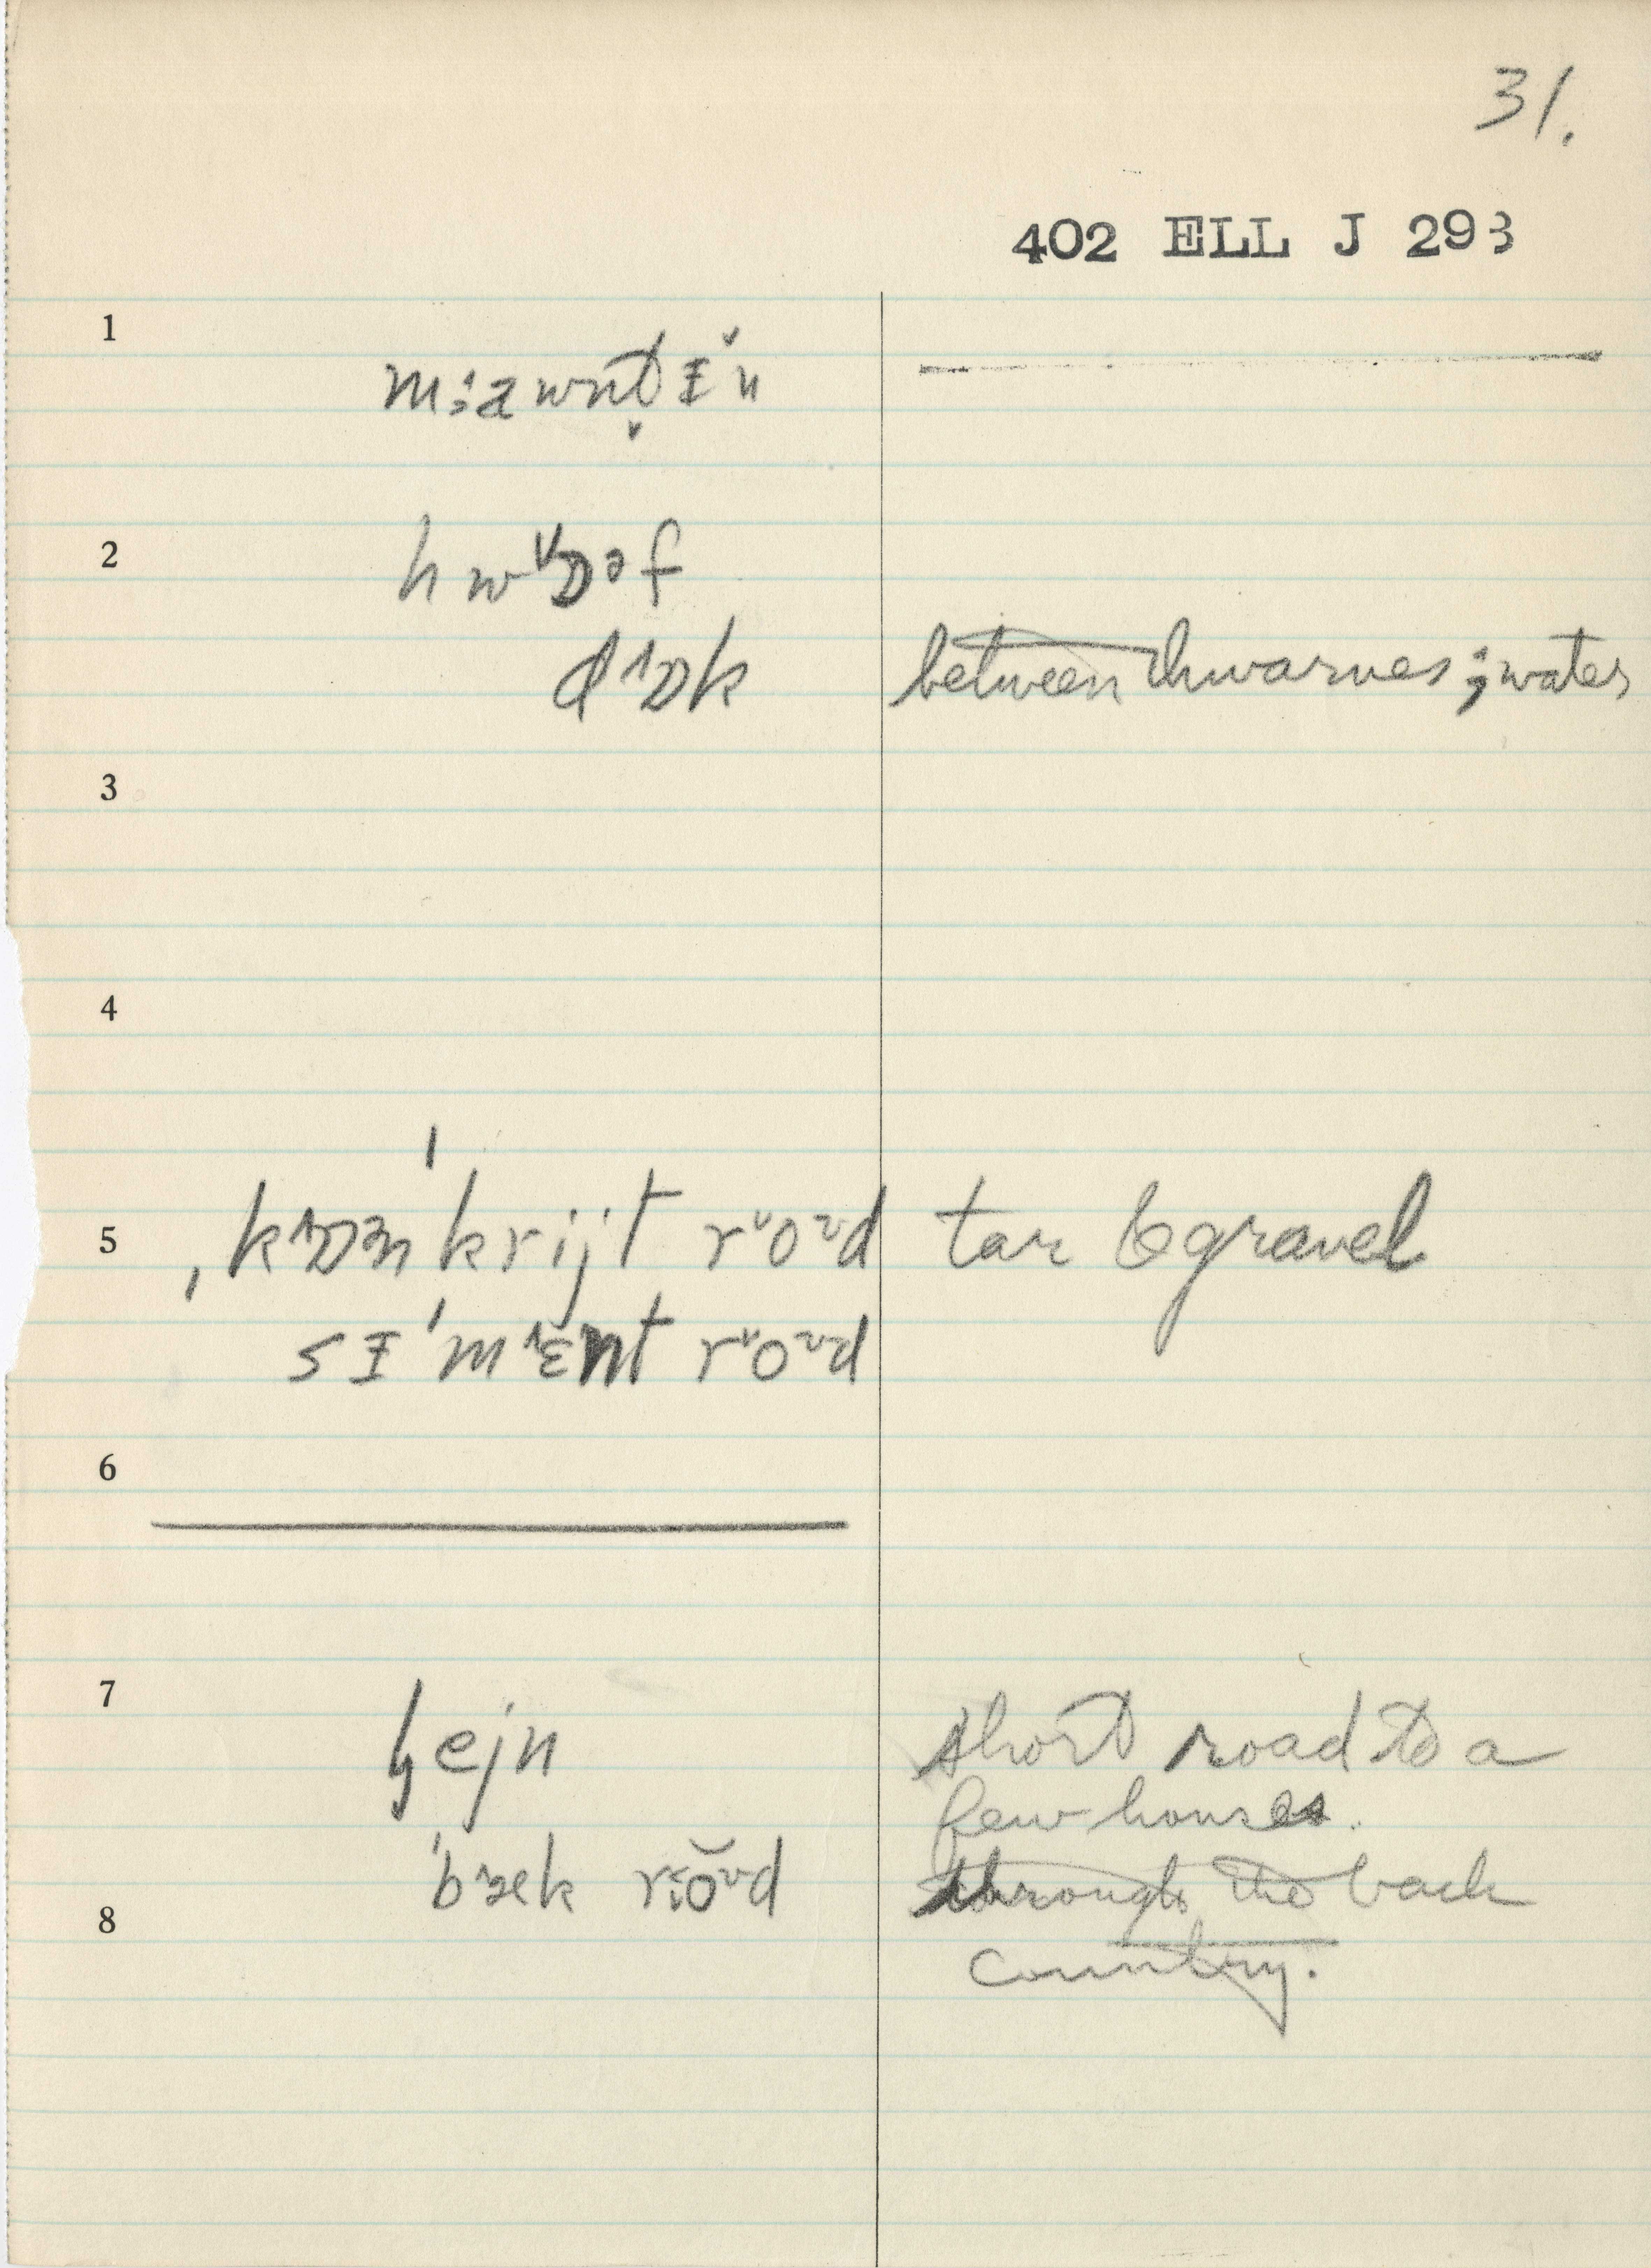 31.
402 ELL J 293
1
m:awnt̬ɪ̆n
2
hwˇɒəf
dˆɒk between thwarves; water
3
4
5
ˌkˆɒn'krijt rˇoˇd tar & gravel
sɪ'mˆɛnt rˇoˇd
6
7
lejn short road to a
few houses.
'bˆæk rˇoˇd through the back
8
country.